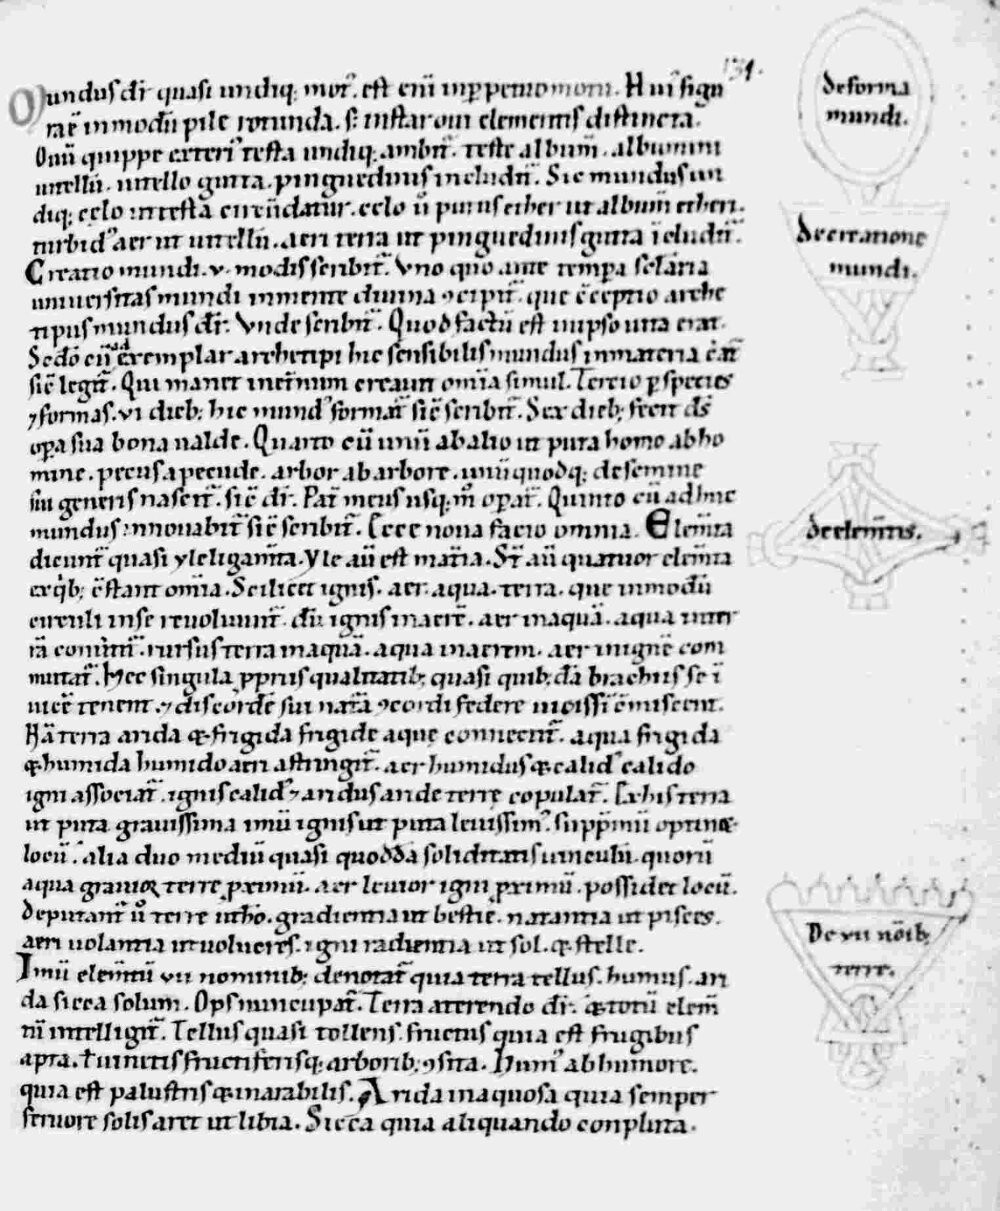 131.
Mundus dr̄ quasi undiq; mot᷒. est eni᷒ inp̱petuo motu. Hui᷒ figu
ra ē in modū pile rotunda. s; instar oui elementis distincta.
Ouū quippe exteri᷒ testa undiq; ambit᷒. teste albumē. albumini
uitellū. uitello gutta. pinguedinis includit᷒. Sic mundus un
diq; cęlo ut testa circūdatur. cęlo ū purus ether ut albumē etheri.
turbid᷒ aer ut uitellū. aeri terra ut pinguedinis gutta īcludit᷒.
Creatio mundi. v. modis scribit᷒. Vno quo ante tempa secłaria
uniuersitas mundi in mente diuina ꝯcipit᷒. que c̄ceptio arche
tipus mundus dr̄. Vnde scribit᷒. Quod factū est in ipso uita erat.
Sedo cū ad exemplar archetipi hic sensibilis mundus in materia c̄at᷒
sic̄ legit᷒. Qui manet in et̄num creauit om̄ia simul. Tercio p̱ species
⁊ formas. vi dieb; hic mund᷒ format᷒ sic̄ scribit᷒. Sex dieb; fecit ds̄
op̱a sua bona ualde. Quarto cū unū ab alio ut puta homo ab ho
mine. pecus a pecude. arbor ab arbore. unū quodq; de semine
sui generis nascit᷒. sic̄ dr̄. Pat᷒ meus usq; m̊ op̱at᷒. Quinto cū adhuc
mundus innouabit᷒ sic̄ scribit᷒. Ecce noua facio omnia. Elem̄ta
dicunt᷒ quasi yle ligam̄ta. Yle aū est mat̄ia. St̄ aū quatuor elem̄ta
ex qib; c̄stant om̄ia. Scilicet ignis. aer. aqua. terra. que in modū
circuli in se reuoluunt᷒. dū ignis in aerē. aer in aquā. aqua in t̄r
rā conūtit᷒. rursus terra in aquā. aqua in aerem. aer in ignē com
mutat᷒. Hęc singula p̱priis qualitatib; quasi quib; dā brachiis se ī
uicē tenent. ⁊ discordē sui nat᷒ā ꝯcordi federe uicissī c̄miscent.
Nā terra arida & frigida frigide aque connectit᷒. aqua frigida
& humida humido aeri astringit᷒. aer humidus & calid᷒ calido
igni associat᷒. ignis calid᷒ ⁊ aridus aride terrę copulat᷒. Ex his terra
ut puta grauissima imū ignis ut puta leuissim᷒. supp̄mū optin&
locū. alia duo mediū quasi quoddā soliditatis uinculū. quorū
aqua grauior terrę p̱ximū. aer leuior igni p̱ximū. possidet locū.
Deputant᷒ ū terre ut hō. gradientia ut bestię. natantia ut pisces.
aeri uolantia ut uolucres. igni radientia ut sol. & stelle.
Imū elem̄tū vii nominib; denotat᷒ quia terra tellus. humus. ari
da sicca solum. Ops nuncupat᷒. Terra a terendo dr̄. & totū elem̄
tū intelligit᷒. Tellus quasi tollens fructus quia est frugibus
apta. ł uinetis fructiferisq; arborib; ꝯsita. Hum᷒ ab humore.
quia est palustris & inarabilis. Arida inaquosa quia semper
feruore solis aret ut libia. Sicca quia aliquando conpluta.
de forma
mundi.
De creatione
mundi.
de elem̄tis.
De vii nōīb;
terre.